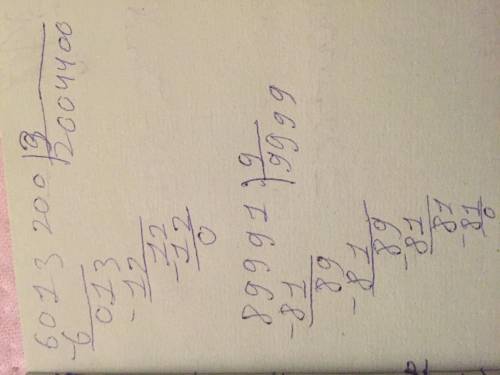 6013 200 | 3
-6 | 2004400
013
-12
12
-12
0
89991 | 9
-81 | 9999
89
-81
89
-81
81
-81
0